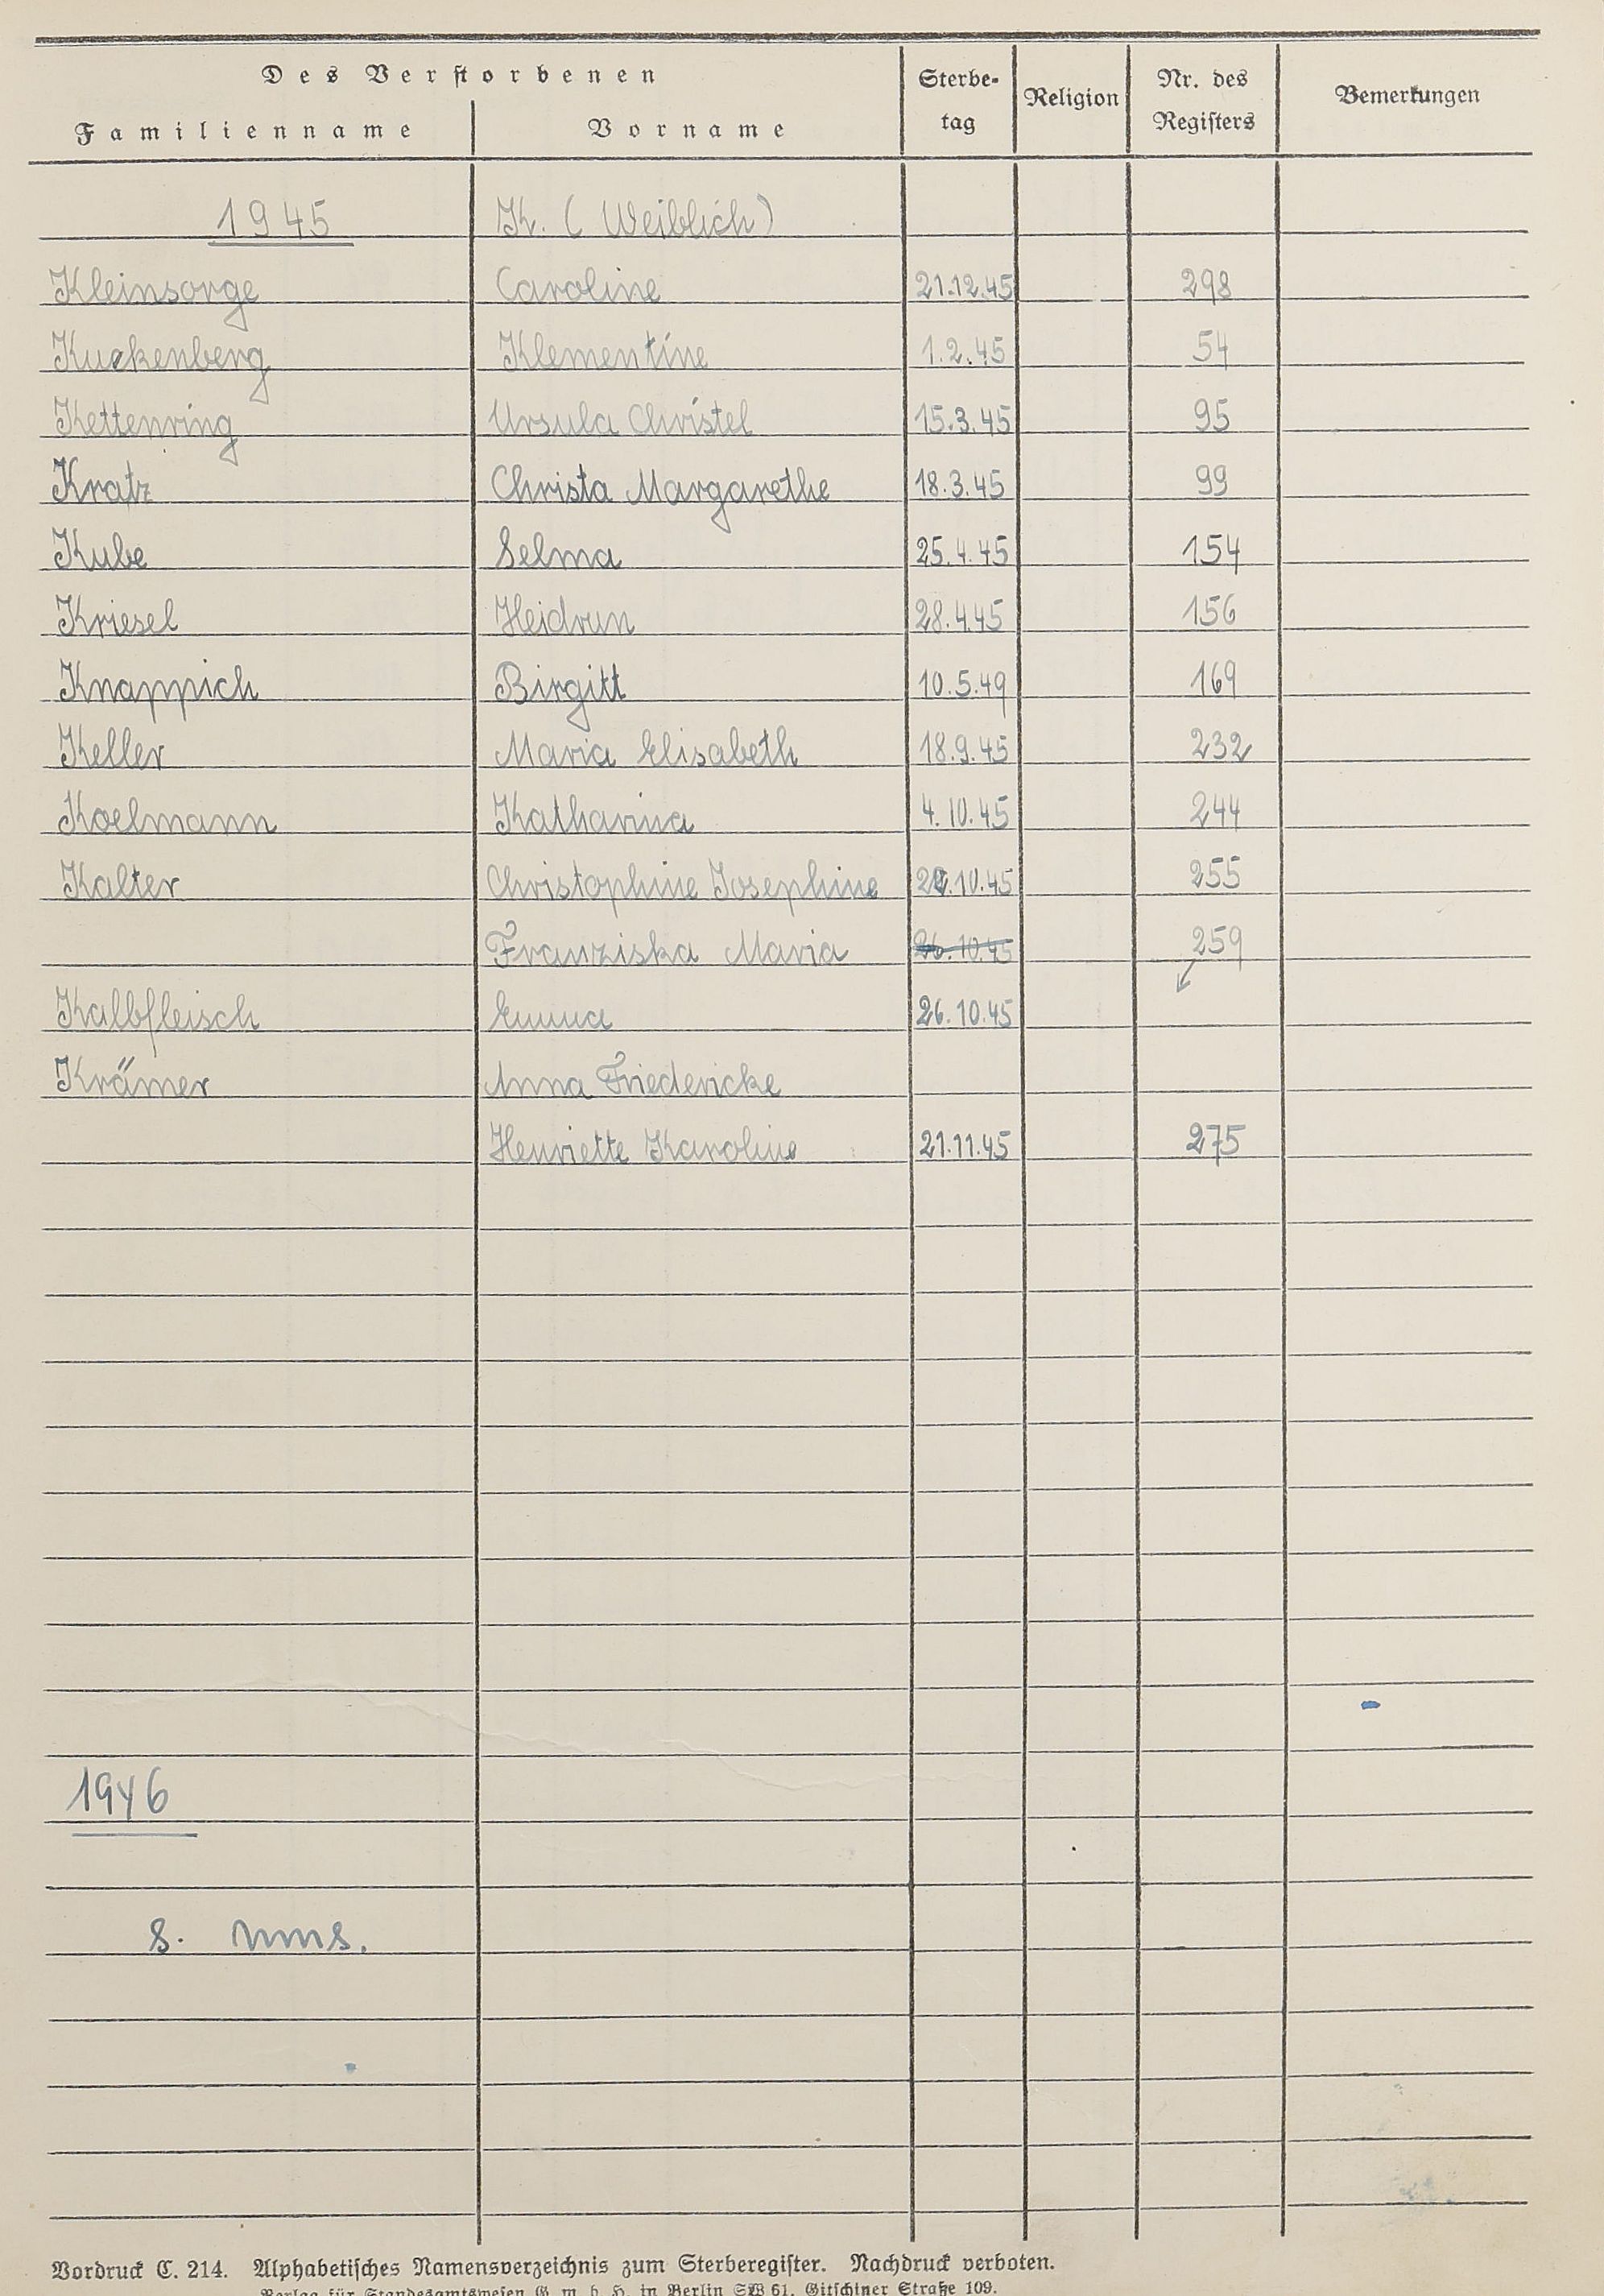 Des Verstorbenen Sterbe- Religion Nr. des Bemerkungen
Familienname Vorname tag Registers
1945 K. (Weiblich)
Kleinsorge Caroline 21.12.45 298
Kuckenberg Klementine 1.2.45 54
Kettenring Ursula Christel 15.3.45 95
Kratz Christa Margarethe 18.3.45 99
Kube Selma 25.4.45 154
Kriesel Heidrun 28.4.45 156
Knappich Birgitt 10.5.49 169
Keller Maria Elisabeth 18.9.45 232
Koelmann Katharina 4.10.45 244
Kalter Christophine Josephine .10.45 255
Franziska Maria 26.10.45 259
Kalbfleisch Emma 26.10.45
Krämer Anna Friedericke
Henriette Karoline 21.11.45 275
1946
s. ums.
Vordruck C. 214. Alphabetisches Namensverzeichnis zum Sterberegister. Nachdruck verboten.
Verlag für Standesamtswesen G. m. b. H. in Berlin SW 61, Gitschiner Straße 109.